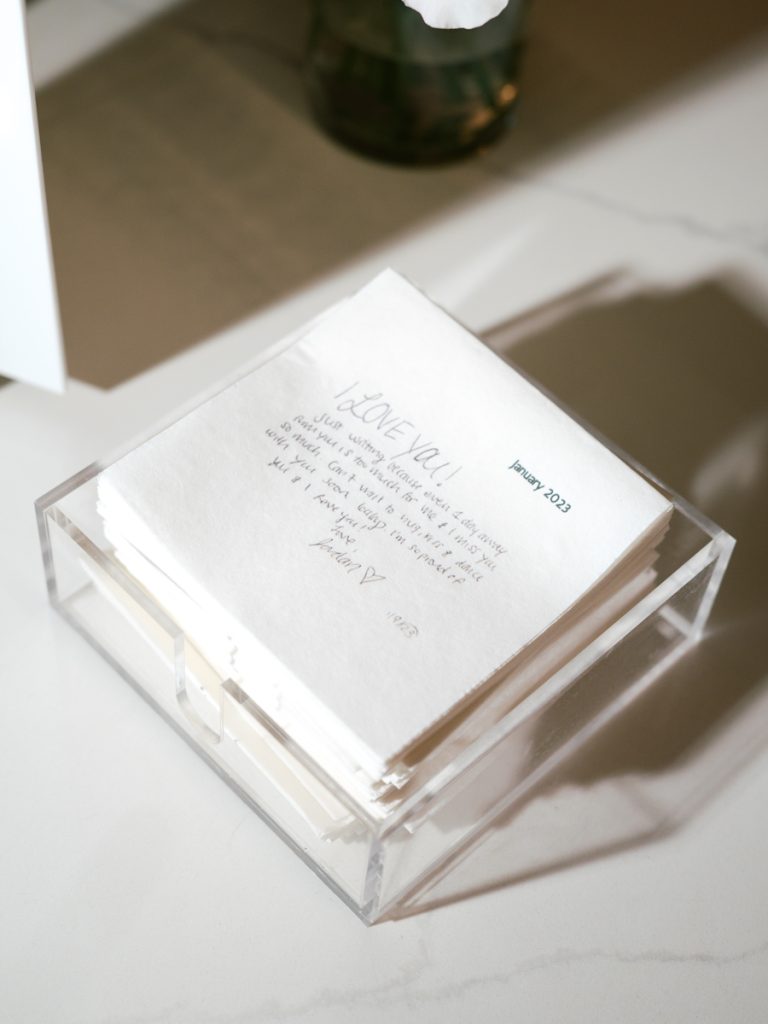 I LOVE YOU!
January 2023
Just writing because even 1 day away
from you is too much for me & I miss you
so much. Can't wait to hug, kiss & dance
with you soon baby. I'm so proud of
you & I love you!
love,
Jordan ♡